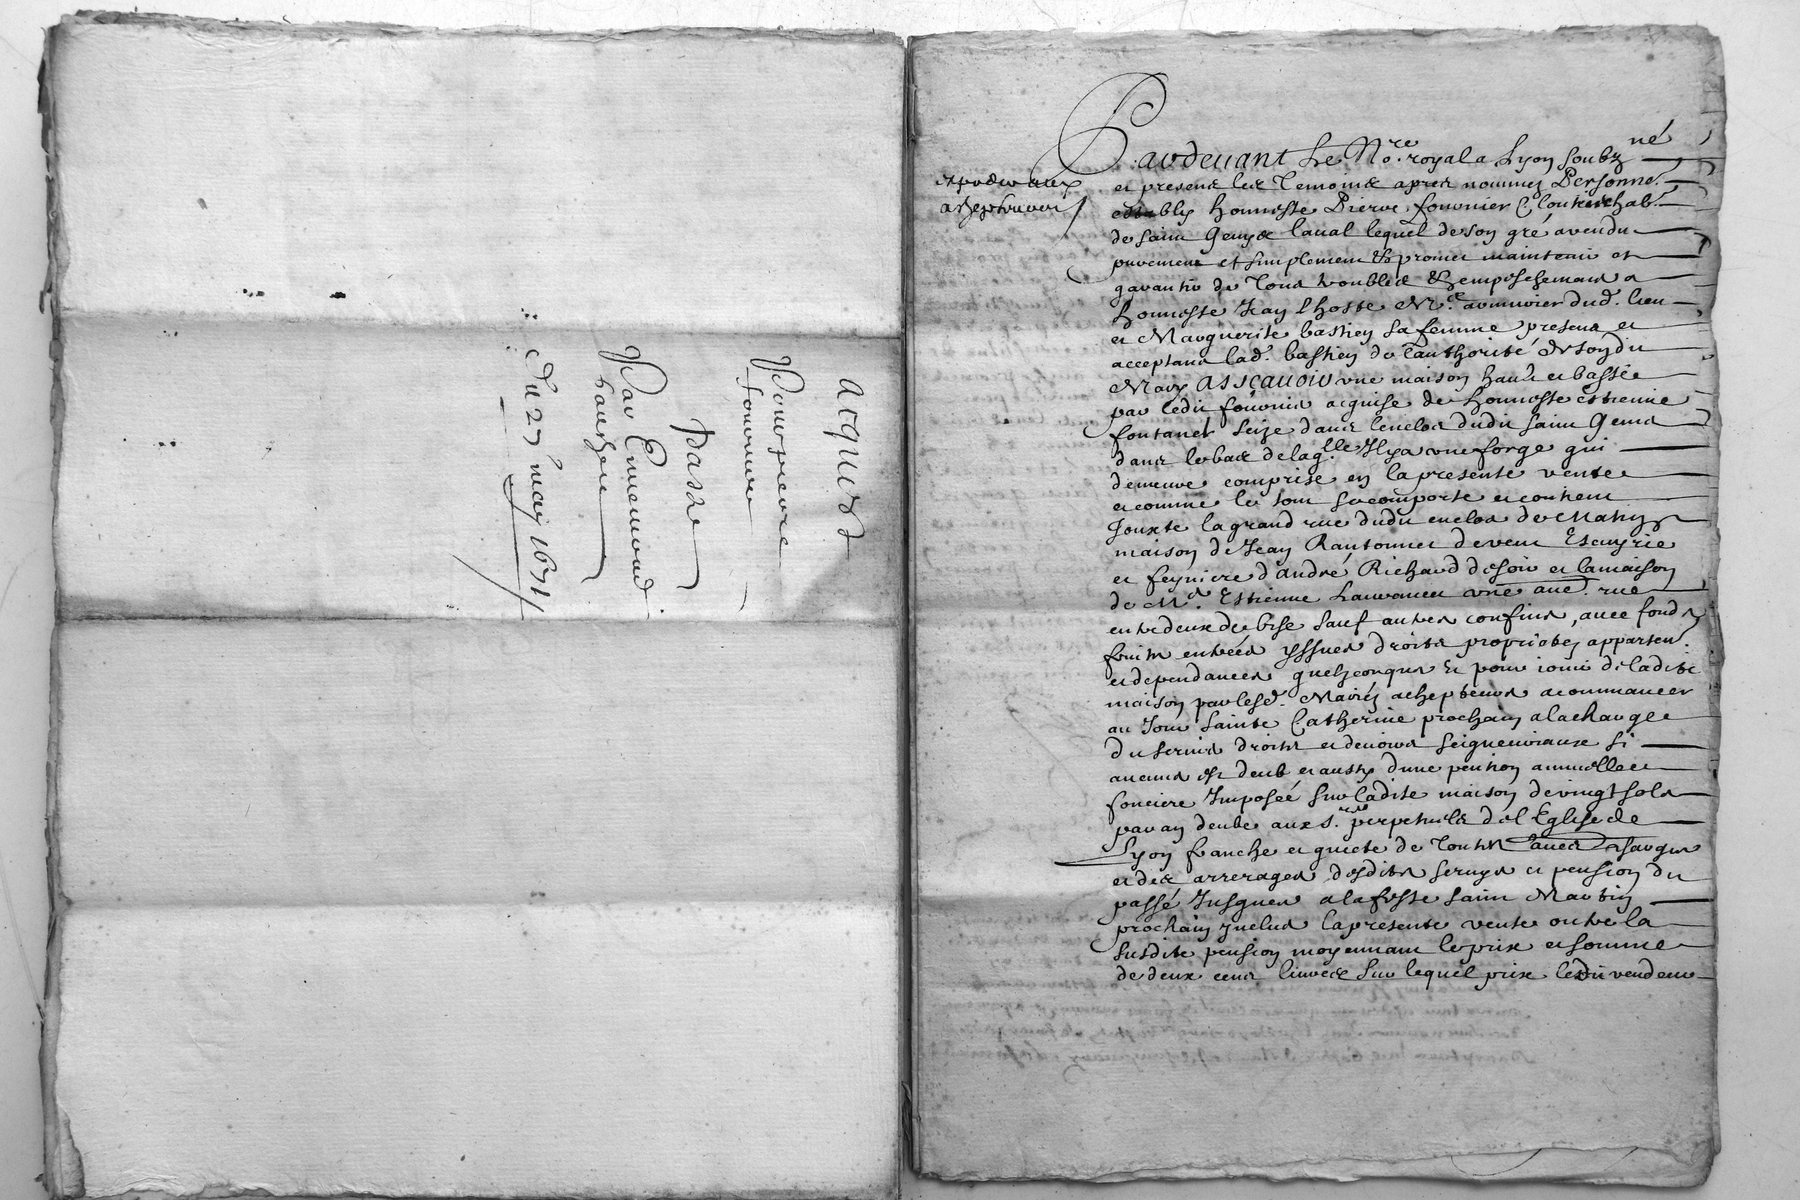 acquis d
Pour pierre
fournier
passé
Par Ennemond
bourgeois
du 27e may 1671
expedié aux
achepteurs
Pardevant Le No.re royal a Lyon soubz.né
et presens les Temoins apres nommez Personne.t
estably honneste Pierre fournier Cloutier hab.t
de saint Genys laual lequel de son gré a vendu
purement et simplement & promet maintenir et
garantir de Tous troubles & empeschemens a
honneste Jean Lhoste M.e armurier dud. lieu
et Marguerite bastien sa femme presens et
acceptans lad. bastien de l'authorité de sondit
Mary ASSCAUOIR vne maison haute et basse
par ledit fournier acquise de honneste estienne
fontanel seize dans lenclos dudit saint Genis
dans le bas de laq.lle Il y a vne forge qui
demeure comprise en la presente vente
et comme le tout se comporte et contient
Jouxte la grand rue dudit enclos de Matin
maison de Jean Rantonnet de vent Escuyrie
et feyniere d'andré Richard de soir et la maison
de M.e Estienne vne anc. rue
entredeux de bise sauf autres confins, auec fonds
fruits entrées yssues droits proprietez apparten.
et dependances quelzconques Et pour iouir de ladite
maison par lesd. Mariez achepteurs a commancer
au Jour Sainte Catherine prochain a la charge
du seruis droits et deuoirs seigneuriaux si
aucuns est deub et aussy dune pention annuelle
fonciere Imposée sur ladite maison de vingt sols
par an deube aux s.rs perpetuels de l'Eglise de
Lyon franche et quicte de toutes autres charges
et des arrerages desdits seruys et pension du
passé Jusques a la feste saint Martin
prochain ynclus la presente vente outre la
susdite pension moyennant le prix et somme
de deux cens liures sur lequel prix ledit vendeur